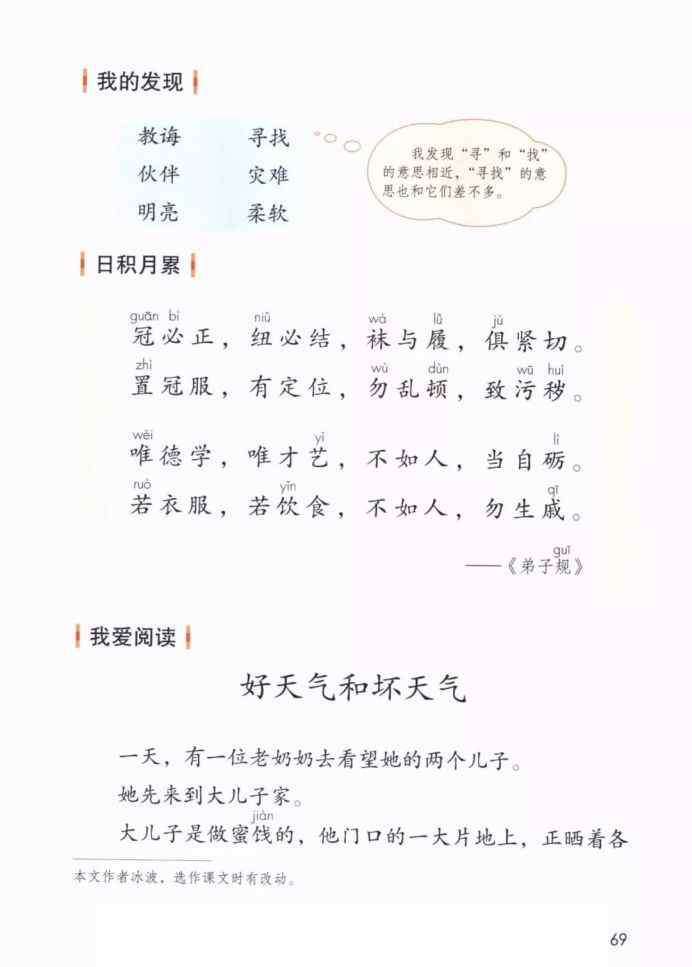 我的发现
教诲 寻找
伙伴 灾难
明亮 柔软
我发现“寻”和“找”
的意思相近，“寻找”的意
思也和它们差不多。
日积月累
guān bì niǔ wà lǚ jù
冠必正，纽必结，袜与履，俱紧切。
zhì wù dùn wū huì
置冠服，有定位，勿乱顿，致污秽。
wéi yì lì
唯德学，唯才艺，不如人，当自砺。
ruò yǐn qī
若衣服，若饮食，不如人，勿生戚。
guī
——《弟子规》
我爱阅读
好天气和坏天气
一天，有一位老奶奶去看望她的两个儿子。
她先来到大儿子家。
jiàn
大儿子是做蜜饯的，他门口的一大片地上，正晒着各
本文作者冰波，选作课文时有改动。
69